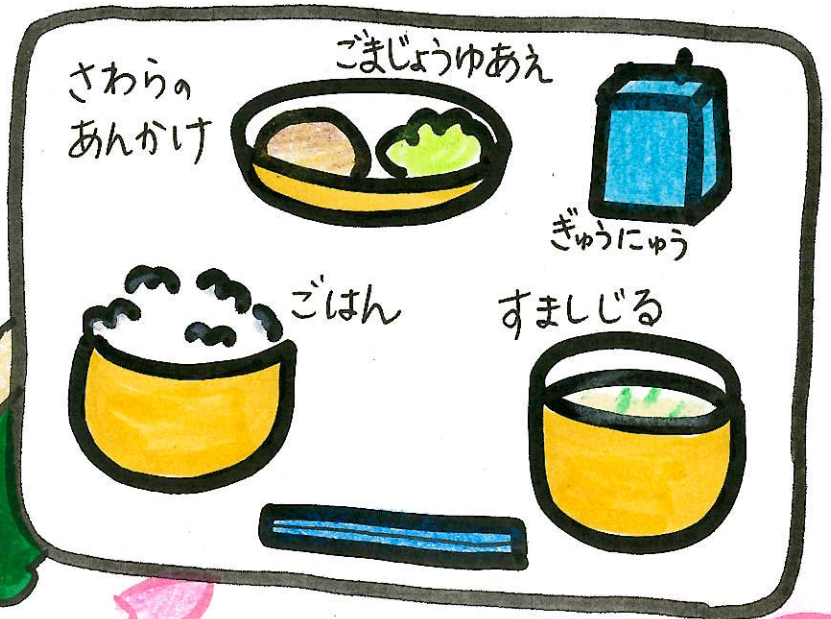 さわらの
あんかけ
ごまじょうゆあえ
ぎゅうにゅう
ごはん
すましじる